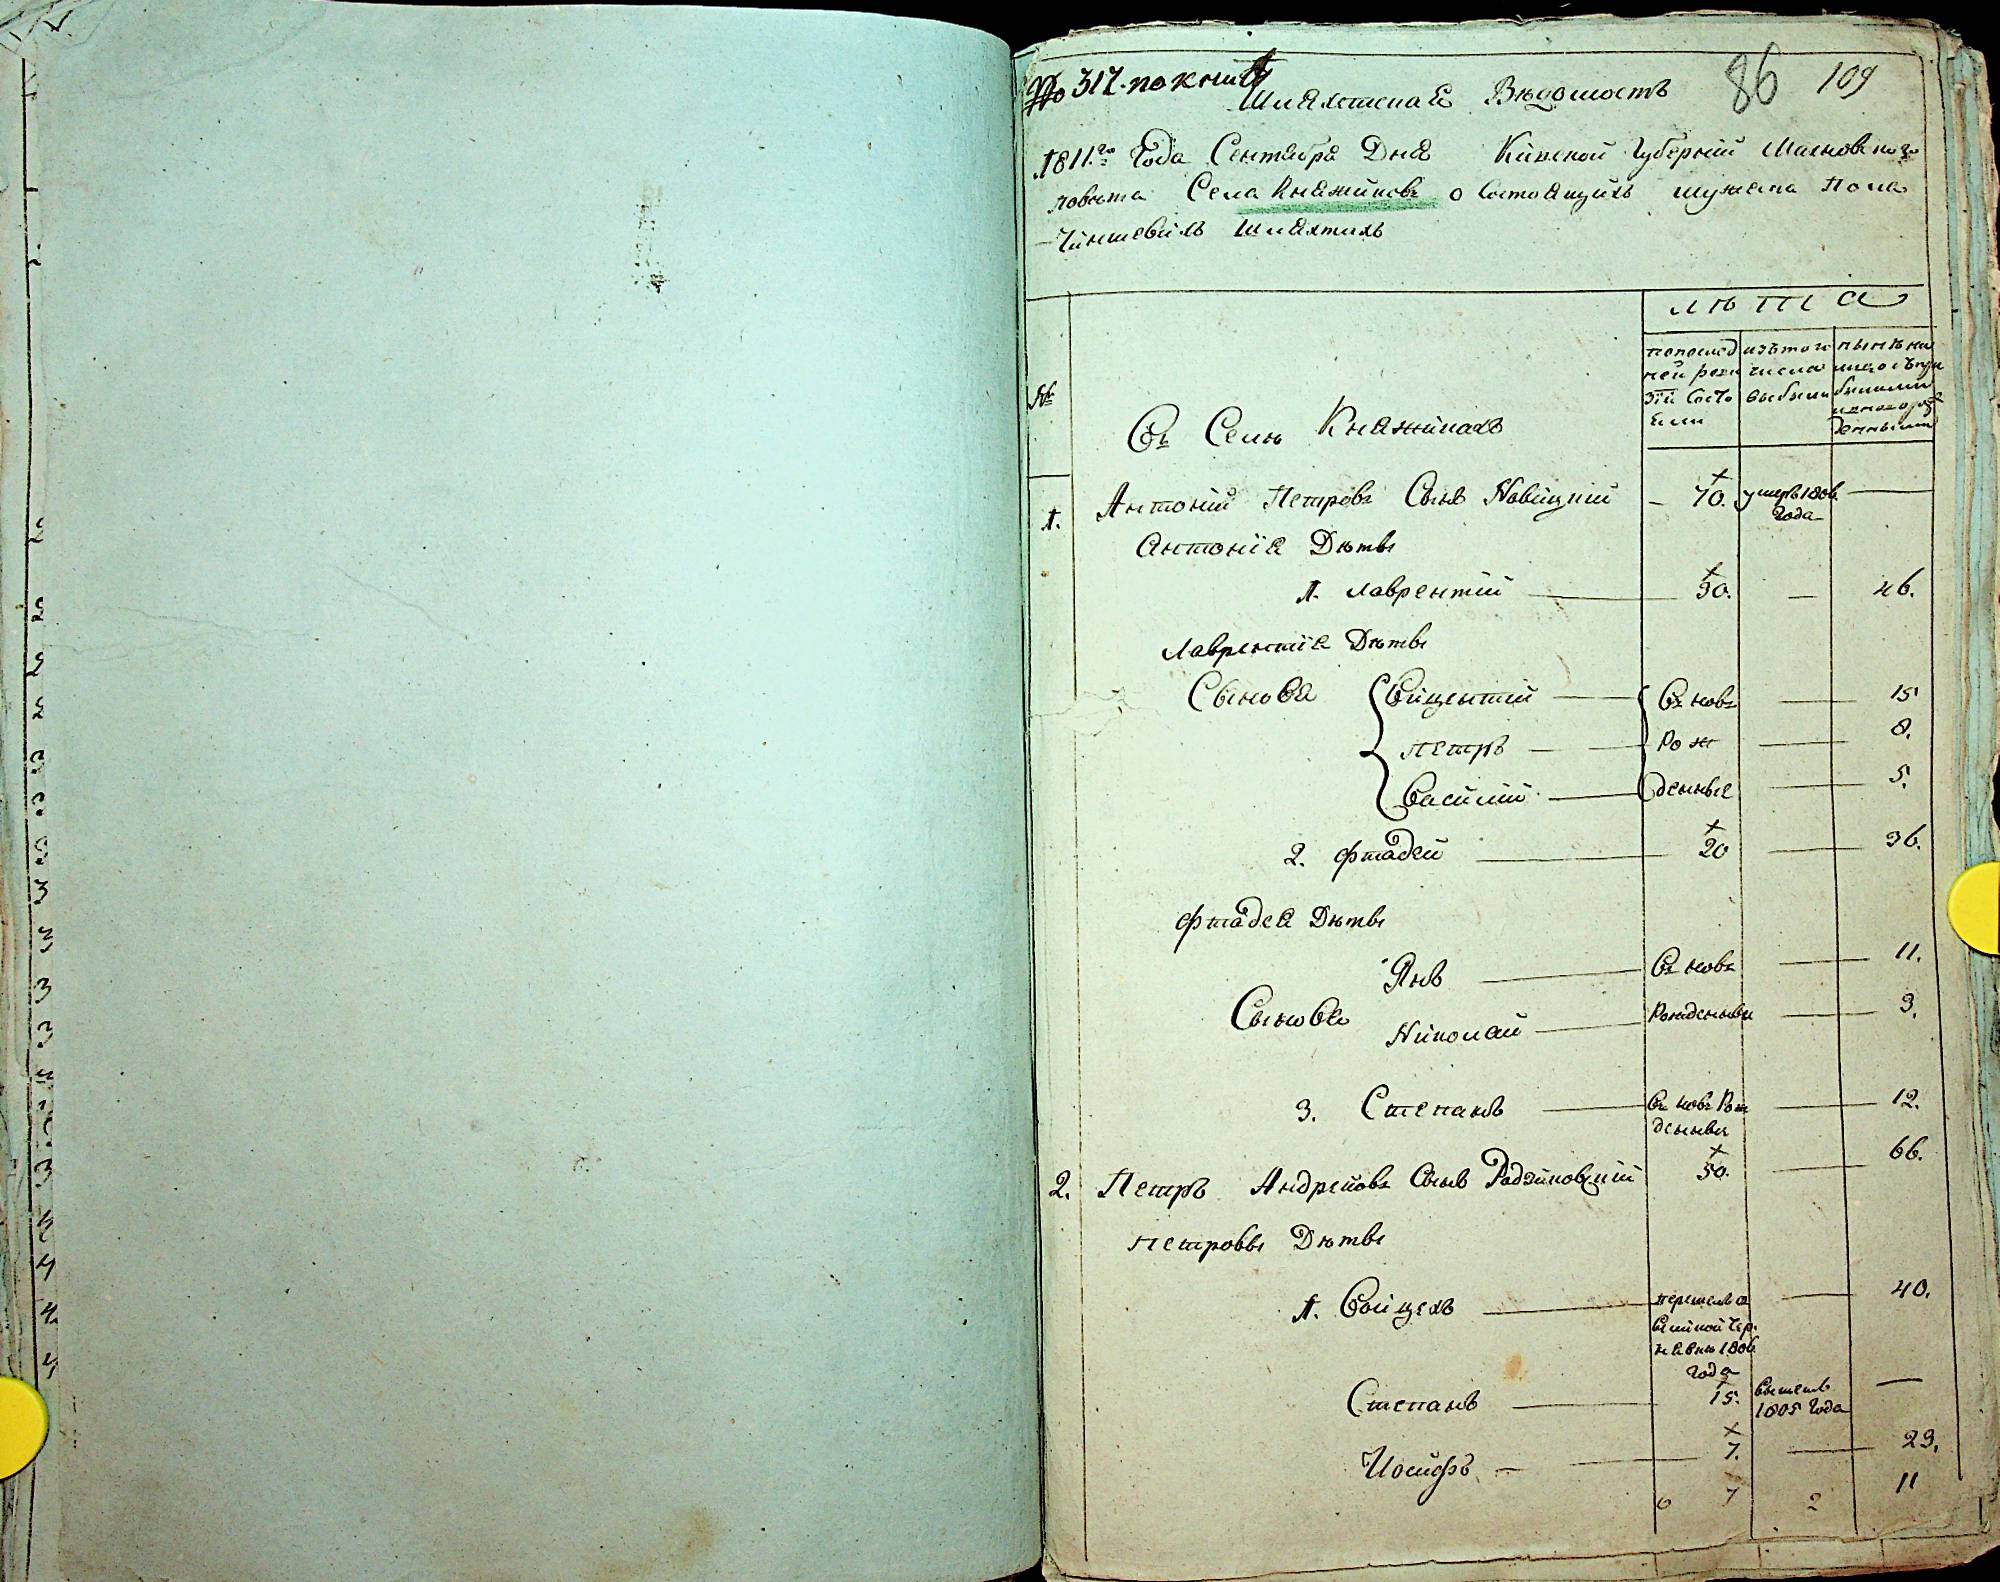 № 317. по книге
Шляхетская Вѣдомость
86 109
1811.го Года Сентября Дня Кіевской Губерніи Махновскаго
повѣта Села Княжиковъ о состоящихъ мужеска пола
Чиншевыхъ Шляхтахъ
ЛѢТА
№
по послед
ней реви
зіи состо
яли
изъ того
числа
выбыли
нынѣ на
лицо съ при
былыми
и новорож
денными
Въ Селѣ Княжикахъ
1. Антоній Петровъ Сынъ Новицкій — 70. умеръ 1806. Года —
Антонія Дѣти
1. Лаврентій — 30. — 46.
Лаврентія Дѣти
Сыновья Вицентій — Вновь — 15
Петръ — рож — 8.
Василій — денные — 5.
2. Фтадей — 20 — 36.
Фтадея Дѣти
Янъ — Вновь — 11.
Сыновья
Николай — рожденные — 3.
3. Степанъ — Вновь рож денный — 12.
2. Петръ Андреевъ Сынъ Радзиковскій 50. — 66.
Петровы Дѣти
1. Войцехъ — перешелъ 1806 года — 40.
Степанъ — 15. вышелъ 1805 Года —
Іосифъ — 7. — 23.
6 7 2 11